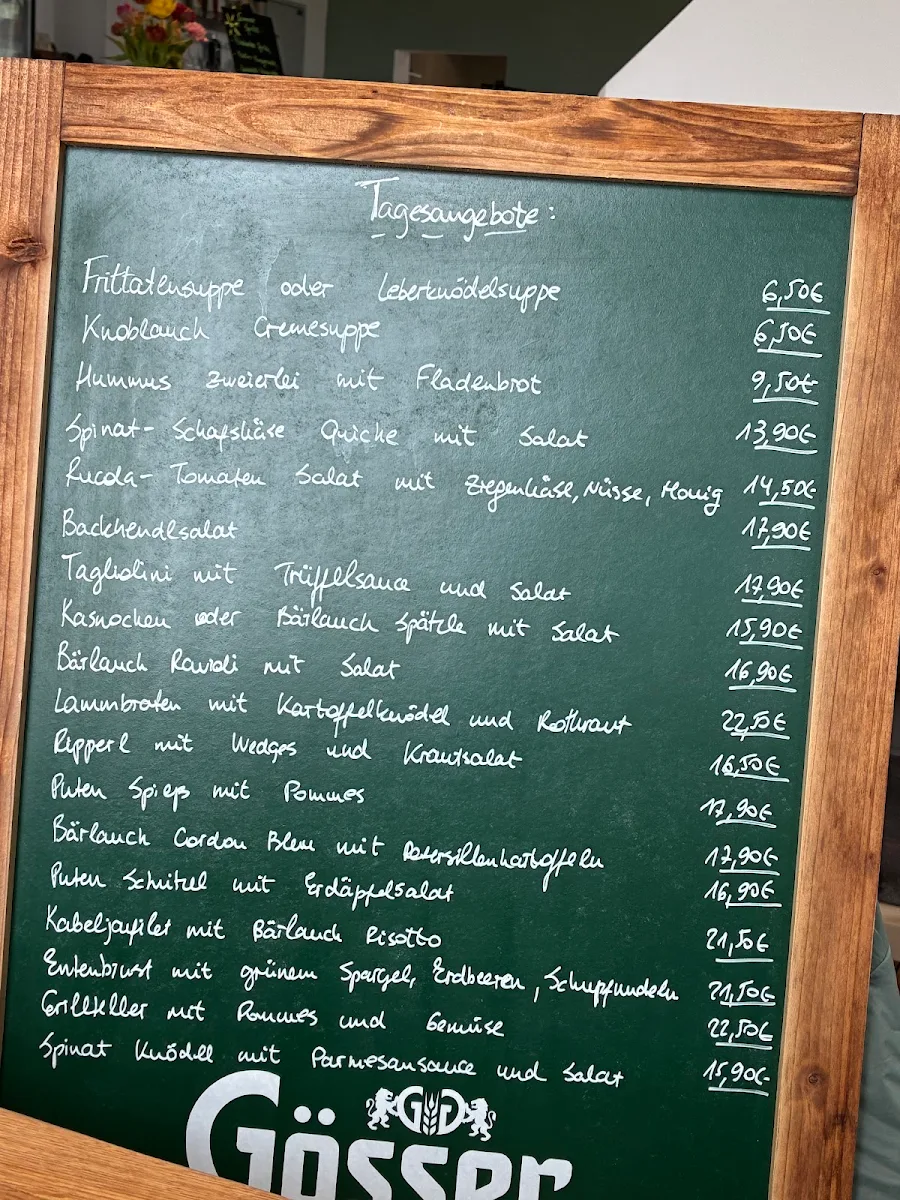 Tagesangebote:
Frittatensuppe oder Leberknödelsuppe 6,50€
Knoblauch Cremesuppe 6,50€
Hummus zweierlei mit Fladenbrot 9,50€
Spinat- Schafskäse Quiche mit Salat 13,90€
Rucola- Tomaten Salat mit Ziegenkäse, Nüsse, Honig 14,50€
Backhendlsalat 17,90€
Tagliolini mit Trüffelsauce und Salat 17,90€
Kasnocken oder Bärlauch Spätzle mit Salat 15,90€
Bärlauch Ravioli mit Salat 16,90€
Lammbraten mit Kartoffelknödel und Rotkraut 22,50€
Ripperl mit Wedges und Krautsalat 16,50€
Puten Spieß mit Pommes 17,90€
Bärlauch Cordon Bleu mit Petersillenkartoffeln 17,90€
Puten Schnitzel mit Erdäpfelsalat 16,90€
Kabeljaufilet mit Bärlauch Risotto 21,50€
Entenbrust mit grünem Spargel, Erdbeeren, Schupfnudeln 21,50€
Grillteller mit Pommes und Gemüse 22,50€
Spinat Knödel mit Parmesansauce und Salat 15,90€
GG
Gösser